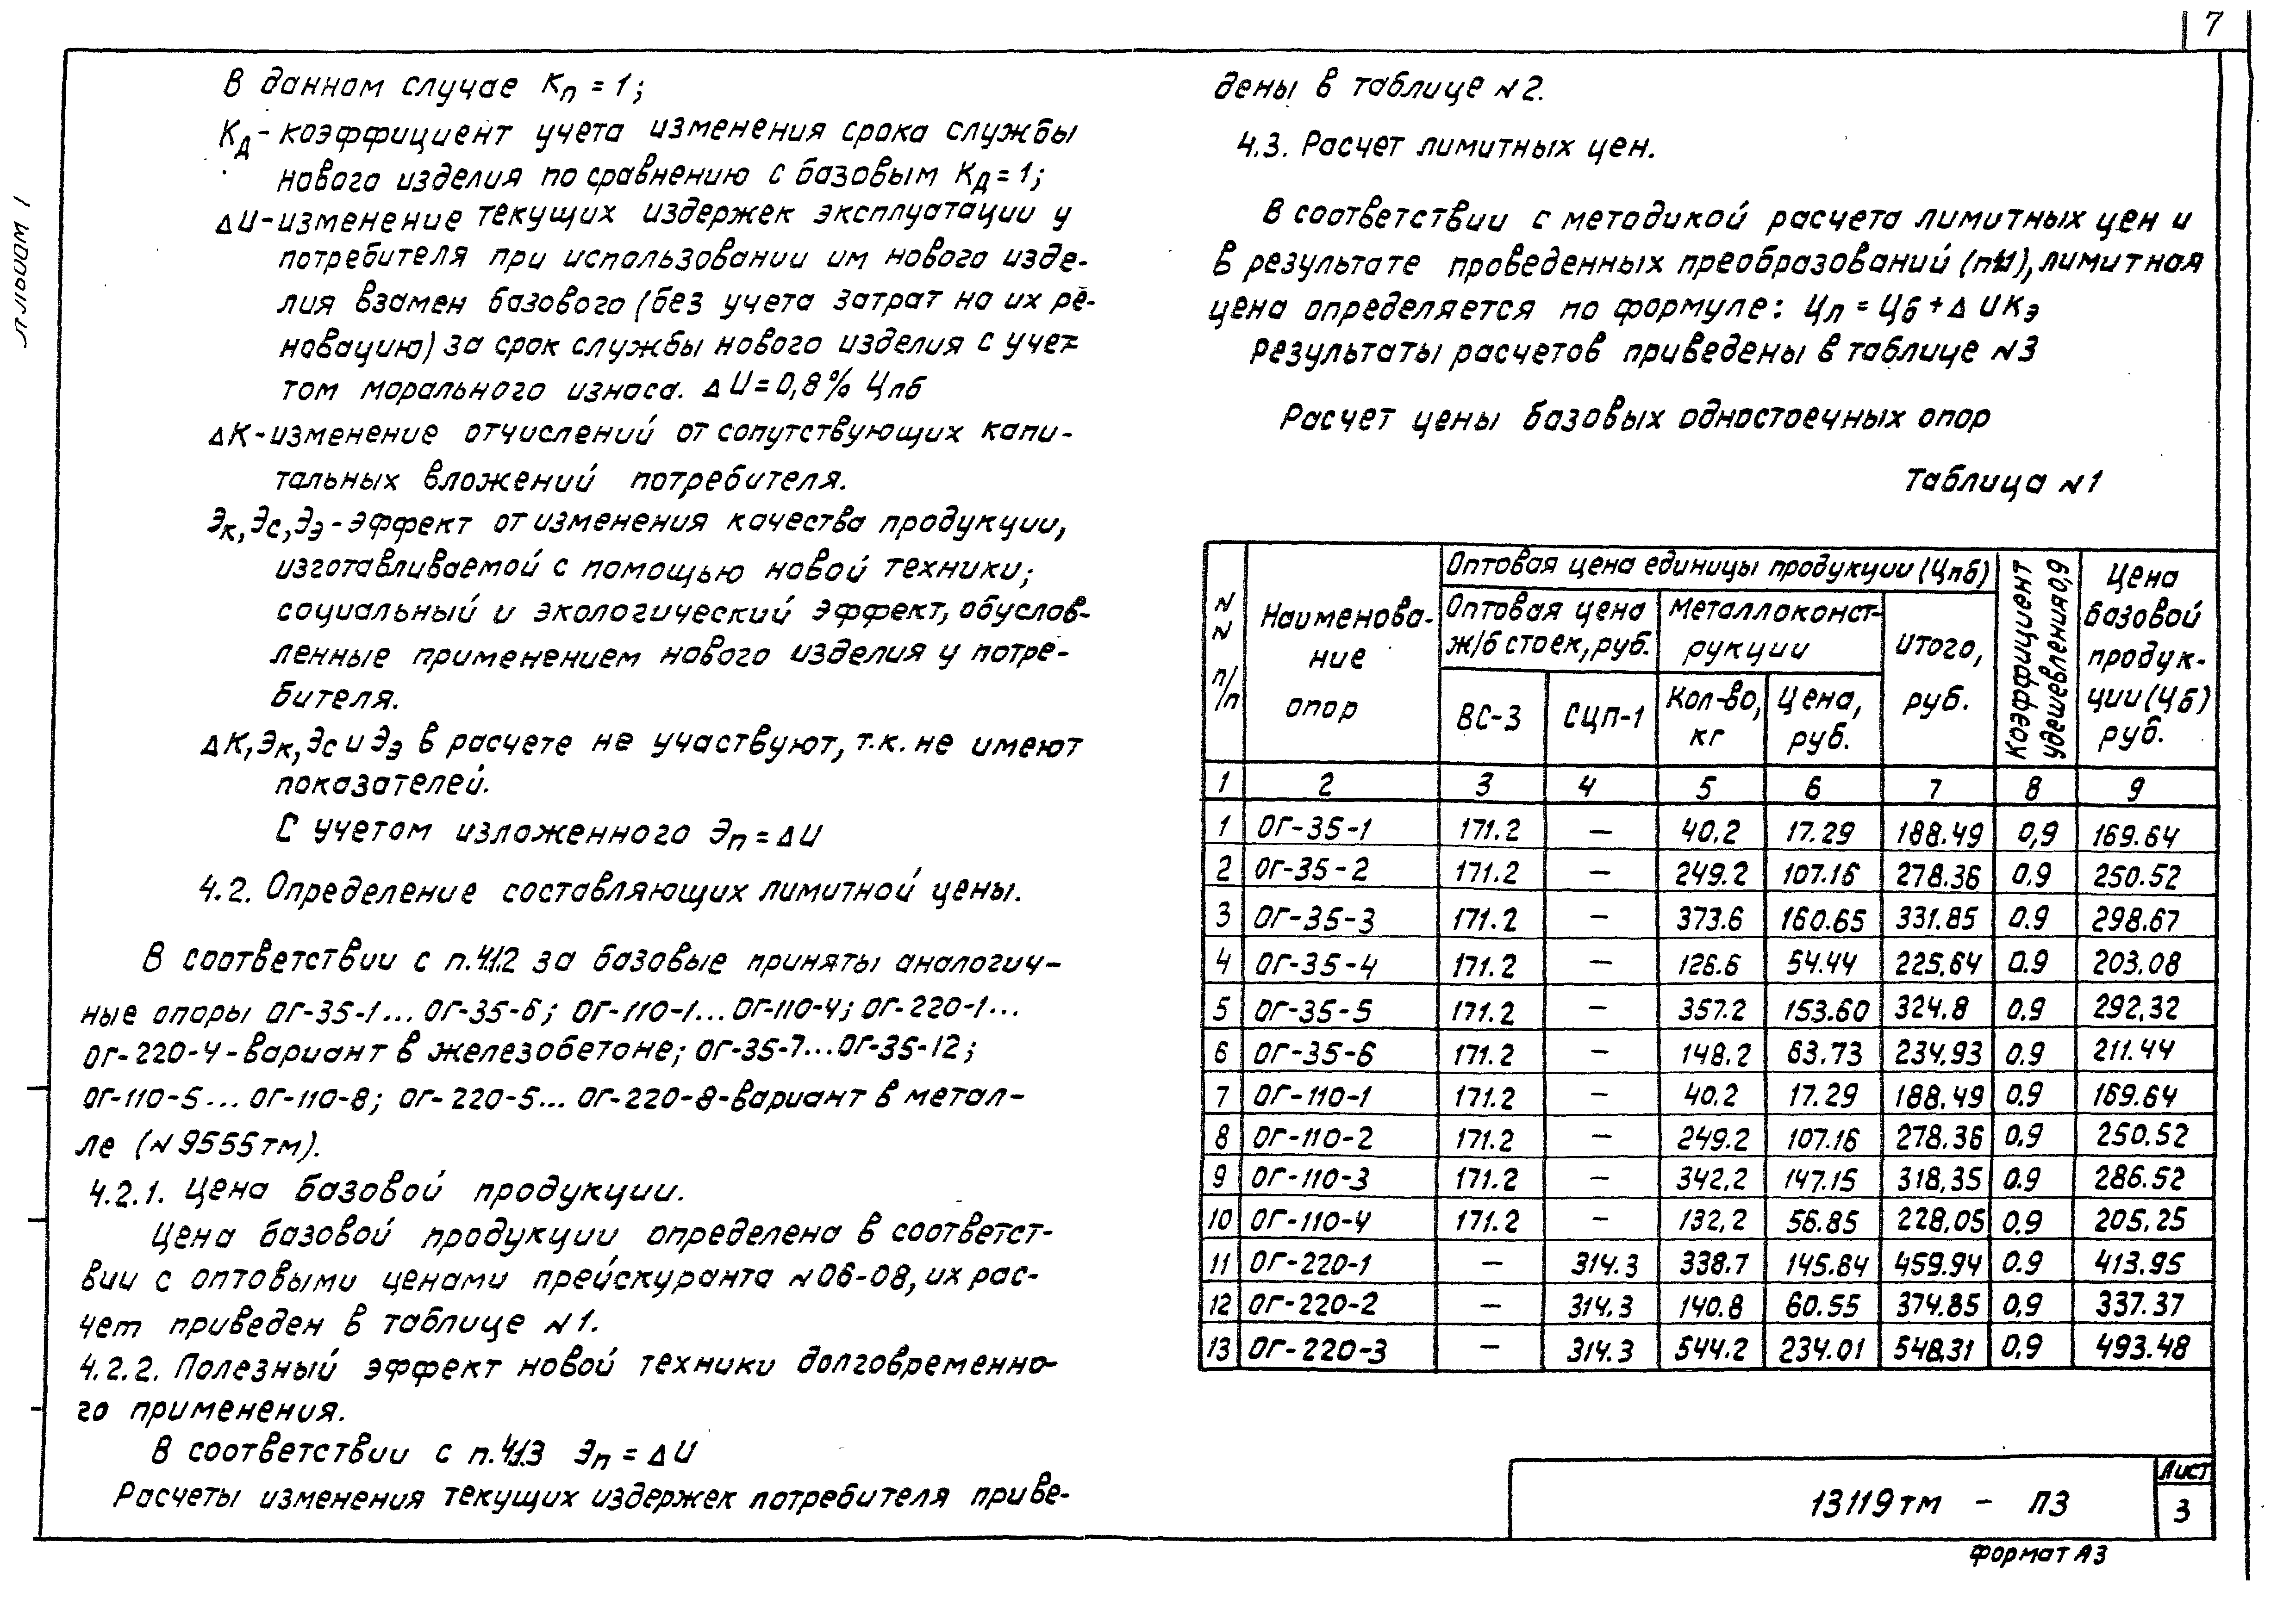 7
Альбом 1
В данном случае Кп = 1;
Кд - коэффициент учета изменения срока службы
нового изделия по сравнению с базовым Кд = 1;
ΔИ - изменение текущих издержек эксплуатации у
потребителя при использовании им нового изде-
лия взамен базового (без учета затрат на их ре-
новацию) за срок службы нового изделия с учет-
том морального износа. ΔИ = 0,8% Цпб
ΔК - изменение отчислений от сопутствующих капи-
тальных вложений потребителя.
Эк, Эс, Ээ - эффект от изменения качества продукции,
изготавливаемой с помощью новой техники;
социальный и экологический эффект, обуслов-
ленные применением нового изделия у потре-
бителя.
ΔК, Эк, Эс и Ээ в расчете не участвуют, т.к. не имеют
показателей.
С учетом изложенного Эп = ΔИ
4.2. Определение составляющих лимитной цены.
В соответствии с п.4.1.2 за базовые приняты аналогич-
ные опоры ОГ-35-1... ОГ-35-6; ОГ-110-1... ОГ-110-4; ОГ-220-1...
ОГ-220-4 - вариант в железобетоне; ОГ-35-7...ОГ-35-12;
ОГ-110-5... ОГ-110-8; ОГ-220-5... ОГ-220-8-вариант в метал-
ле (N 9555тм).
4.2.1. Цена базовой продукции.
Цена базовой продукции определена в соответст-
вии с оптовыми ценами прейскуранта N 06-08, их рас-
чет приведен в таблице N1.
4.2.2. Полезный эффект новой техники долговременно-
го применения.
В соответствии с п.4.1.3 Эп = ΔИ
Расчеты изменения текущих издержек потребителя приве-
дены в таблице N2.
4.3. Расчет лимитных цен.
В соответствии с методикой расчета лимитных цен и
в результате проведенных преобразований (п4.1), лимитная
цена определяется по формуле: Цл = Цб + ΔИКэ
результаты расчетов приведены в таблице N3
Расчет цены базовых одностоечных опор
Таблица N1
NN п/п | Наименование опор | Оптовая цена единицы продукции (Цпб) | Коэффициент удешевления 0,9 | Цена базовой продукции (Цб) руб.
Оптовая цена ж/б стоек, руб. | Металлоконструкции | итого, руб.
ВС-3 | СЦП-1 | Кол-во, кг | Цена, руб.
1 | 2 | 3 | 4 | 5 | 6 | 7 | 8 | 9
1 | ОГ-35-1 | 171.2 | — | 40.2 | 17.29 | 188.49 | 0,9 | 169.64
2 | ОГ-35-2 | 171.2 | — | 249.2 | 107.16 | 278.36 | 0.9 | 250.52
3 | ОГ-35-3 | 171.2 | — | 373.6 | 160.65 | 331.85 | 0.9 | 298.67
4 | ОГ-35-4 | 171.2 | — | 126.6 | 54.44 | 225.64 | 0.9 | 203.08
5 | ОГ-35-5 | 171.2 | — | 357.2 | 153.60 | 324.8 | 0.9 | 292,32
6 | ОГ-35-6 | 171.2 | — | 148.2 | 63.73 | 234.93 | 0.9 | 211.44
7 | ОГ-110-1 | 171.2 | — | 40.2 | 17.29 | 188.49 | 0.9 | 169.64
8 | ОГ-110-2 | 171.2 | — | 249.2 | 107.16 | 278.36 | 0.9 | 250.52
9 | ОГ-110-3 | 171.2 | — | 342.2 | 147.15 | 318,35 | 0.9 | 286.52
10 | ОГ-110-4 | 171.2 | — | 132,2 | 56.85 | 228.05 | 0.9 | 205.25
11 | ОГ-220-1 | — | 314.3 | 338.7 | 145.64 | 459.94 | 0.9 | 413.95
12 | ОГ-220-2 | — | 314.3 | 140.8 | 60.55 | 374.85 | 0,9 | 337.37
13 | ОГ-220-3 | — | 314.3 | 544.2 | 234.01 | 548,31 | 0.9 | 493.48
13119тм - ПЗ
Лист
3
Формат А3